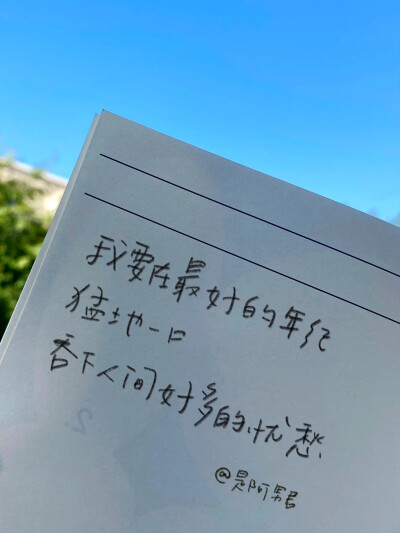 我要在最好的年纪
猛地一口
吞下人间好多的忧愁
@是阿男君
2.